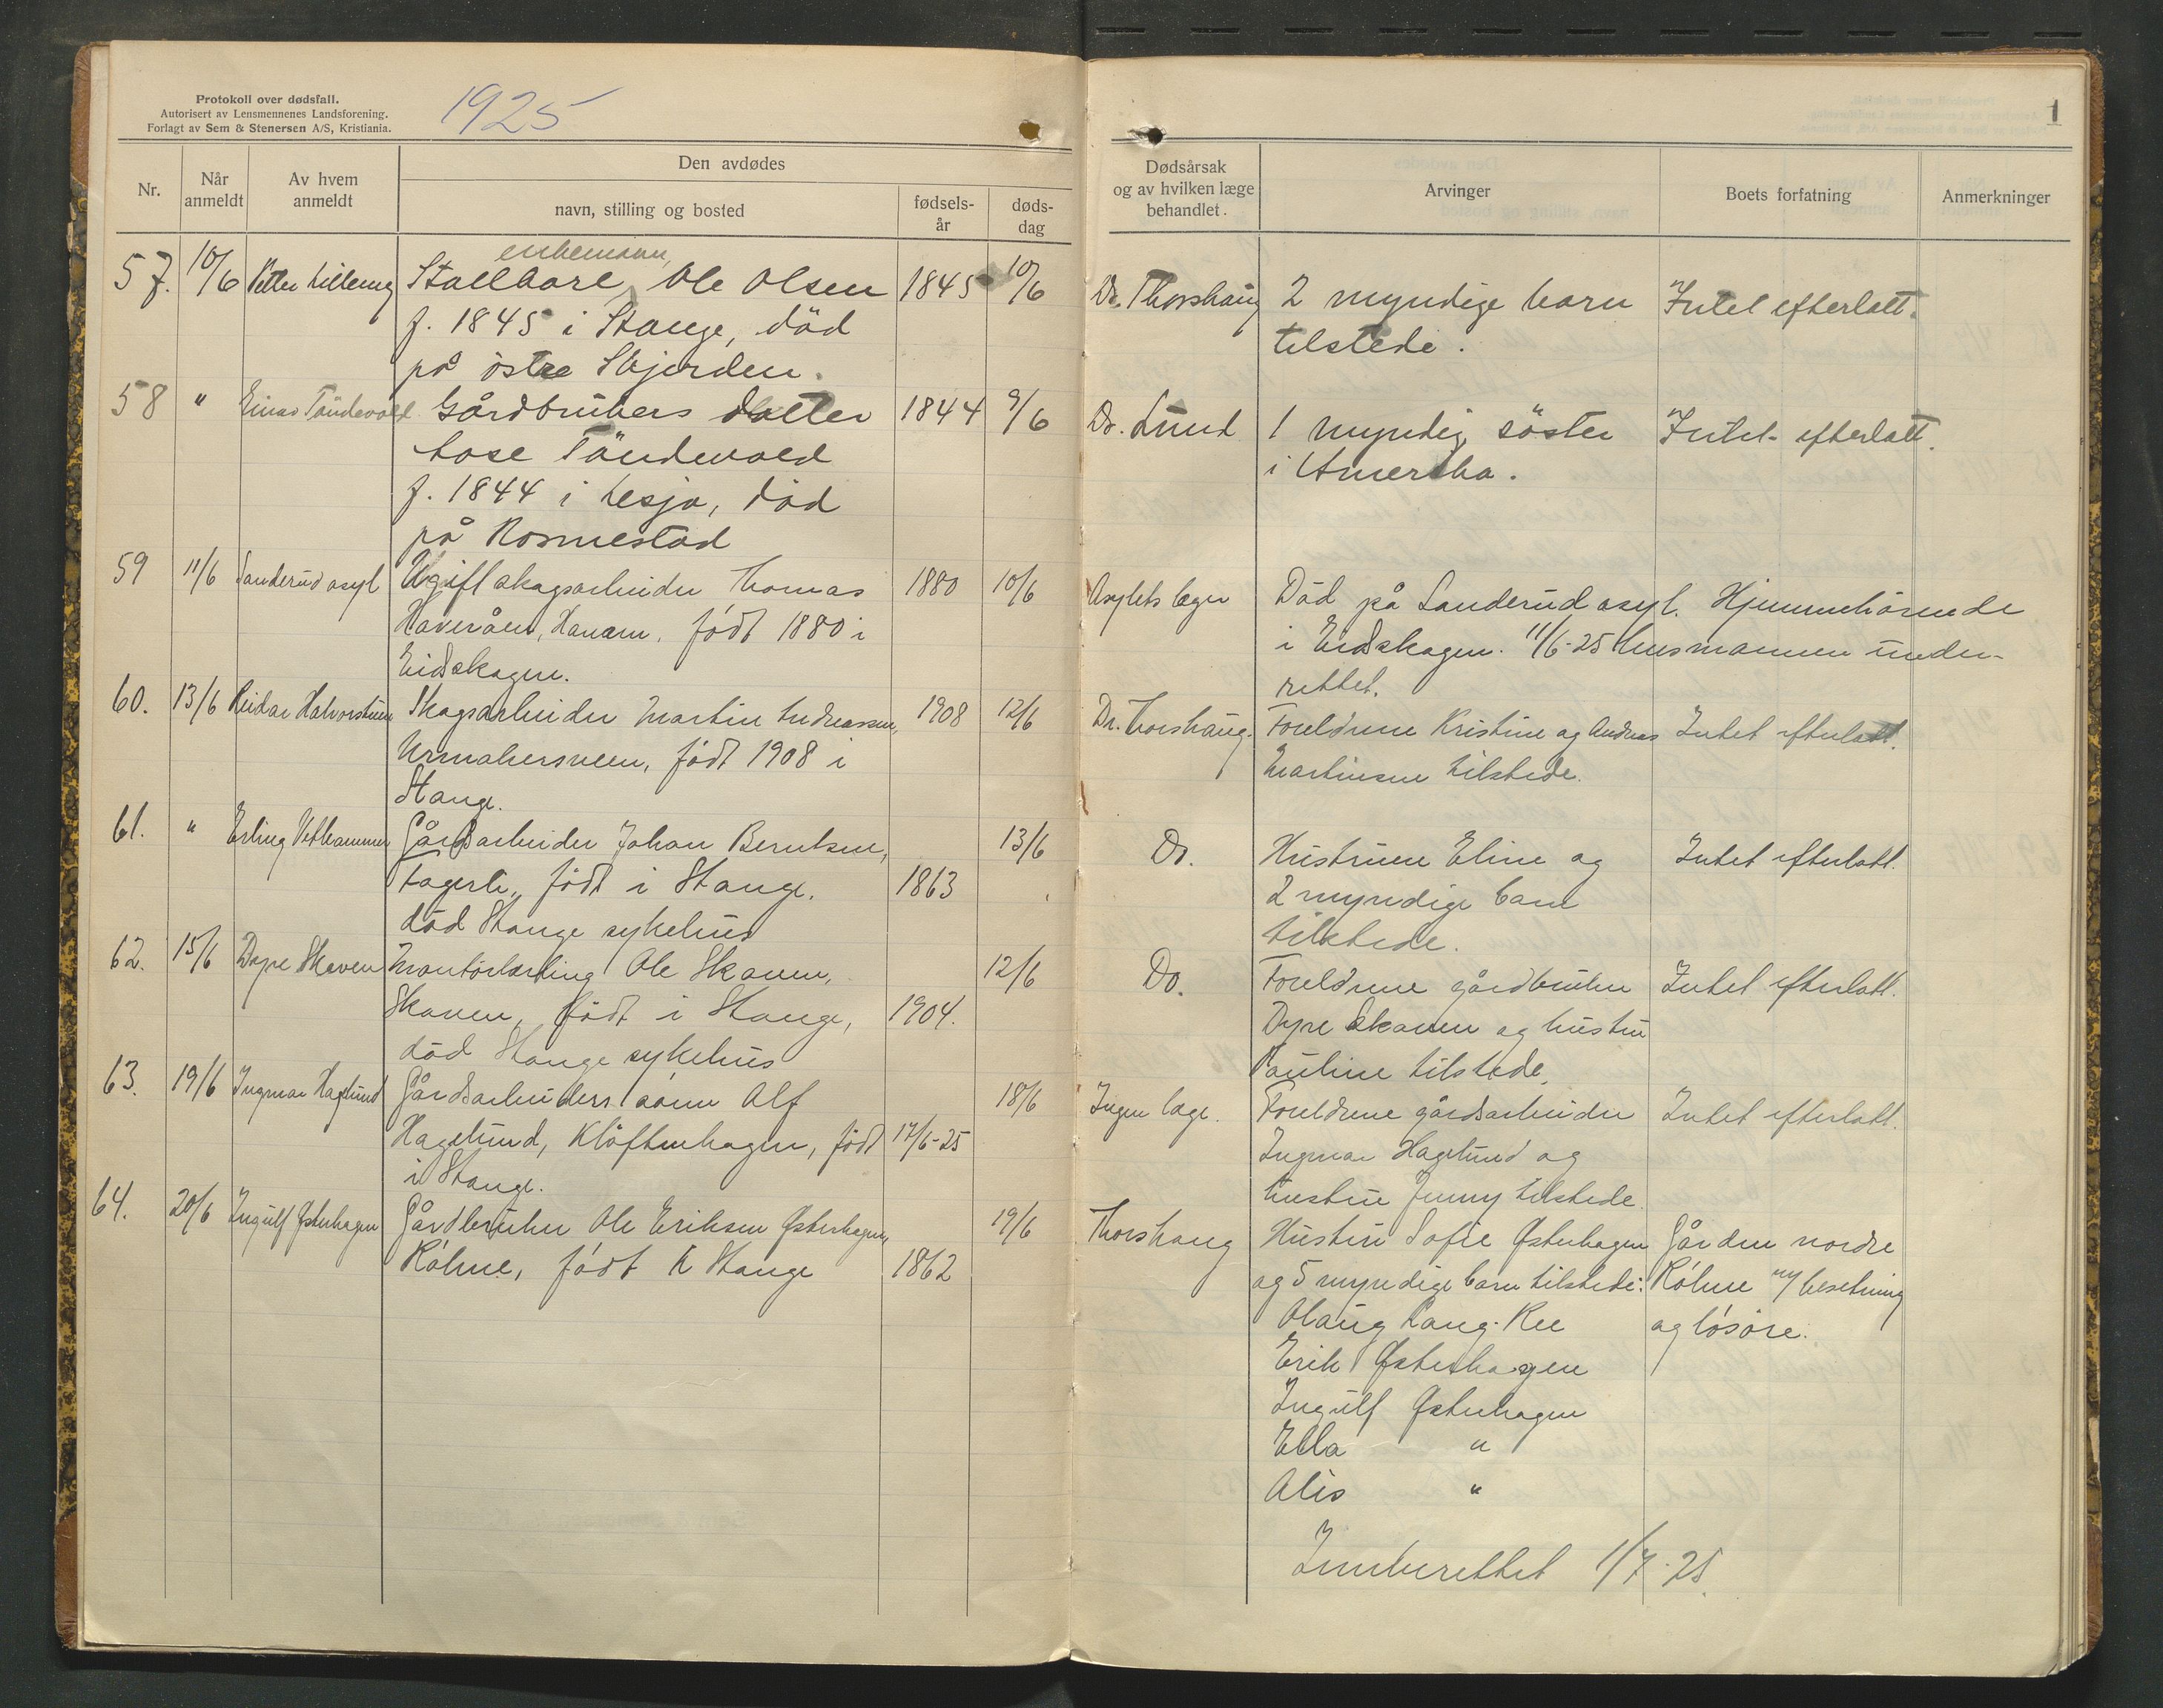 Protokoll over dødsfall.
Autorisert av Lensmennenes Landsforening.
Forlagt av Sem & Stenersen A/S, Kristiania.
1925
Nr.
Når anmeldt
Av hvem anmeldt
Den avdødes
navn, stilling og bosted
fødsels-år
døds-dag
57. 10/6 Petter enkemann,
Ole Olsen 1845 10/6
f. 1845 i Stange, död
på östre
58 " Einar Töndevold Gårdbrukers datter 1844 9/6
Töndevold
f. 1844 i Lesja, död
på
59 11/6 Sanderud asyl Ugift skogsarbeider Thomas 1880 10/6
født 1880 i
Eidskogen.
60. 13/6 Reidar Halvorstuen Skogsarbeider Martin Andreassen, 1908 12/6
Urmakersveen, født 1908 i
Stange.
61. " Erling Vethammer Gårdsarbeider Johan Berntsen, 13/6
Fagerli, født i Stange. 1863
död Stange sykehus
62. 15/6 Dyre Skaven Montörlærling Ole Skaven, 12/6
Skaven, født i Stange, 1904.
död Stange sykehus
63. 19/6 Ingmar Hagelund Gårdsarbeiders sönn Alf 18/6
Hagelund, Klöftenhagen, född 17/6-25
i Stange.
64. 20/6 Ingulf Østerhagen Gårdbruker Ole Eriksen Østerhagen, 19/6
Röhne, født i Stange 1862
1
Dødsårsak
og av hvilken læge
behandlet.
Arvinger
Boets forfatning
Anmerkninger
Dr. Thorshaug 2 myndige barn Intet efterlatt.
tilstede.
Dr. Lund 1 myndig söster Intet efterlatt.
i Amerika.
Asylets læger Död på Sanderud asyl. Hjemmehörende
i Eidskogen. 11/6-25 lensmannen under-
rettet.
Dr. Thorshaug. Foreldrene Kristine og Andreas Intet efterlatt.
Martinsen tilstede.
Do. Hustruen Eline og Intet efterlatt.
2 myndige barn
tilstede.
Do. Foreldrene gårdbruker Intet efterlatt.
Dyre Skaven og hustru
Pauline tilstede.
Ingen læge. Foreldrene gårdsarbeider Intet efterlatt.
Ingmar Hagelund og
hustru Jenny tilstede.
Thorshaug Hustru Sofie Østerhagen Gården nordre
og 5 myndige barn tilstede: Röhne m/ besetning
Olaug Lang-Ree og lösöre.
Erik Østerhagen
Ingulf Østerhagen
Ella "
Alis "
Innberettet 1/7-25.